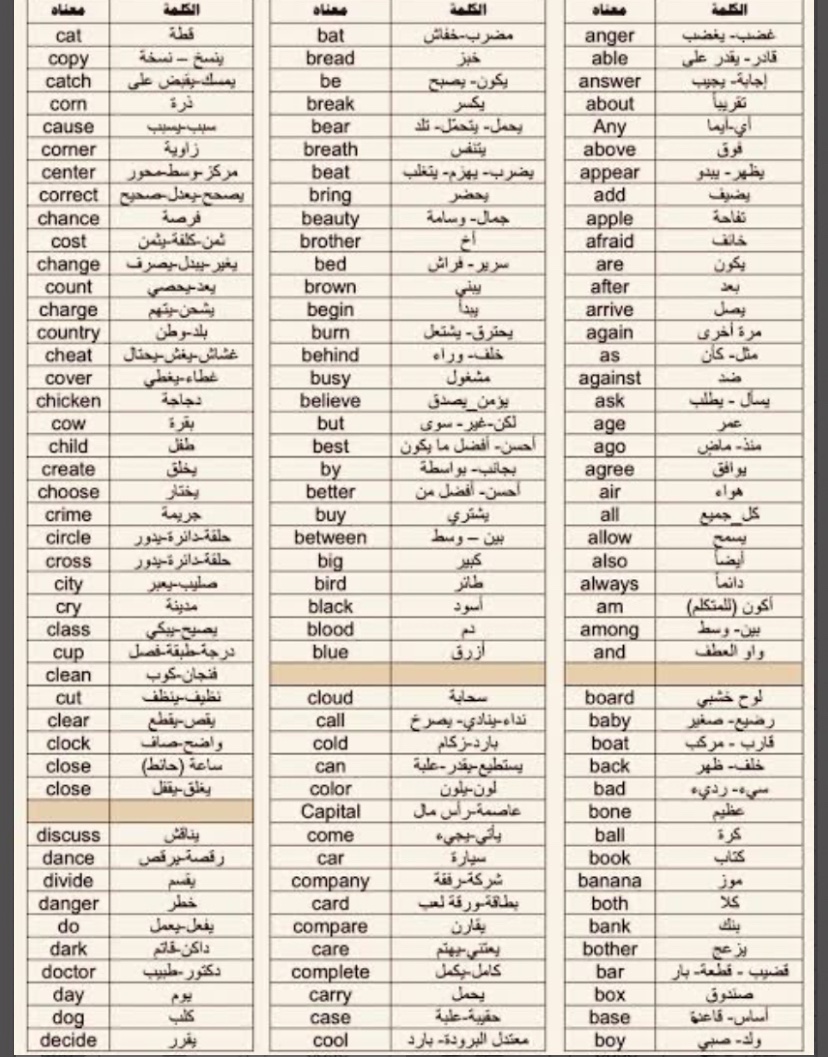 معناه الكلمة
anger غضب- يغضب
able قادر- يقدر على
answer إجابة- يجيب
about تقريباً
Any أي-أيما
above فوق
appear يظهر- يبدو
add يضيف
apple تفاحة
afraid خائف
are يكون
after بعد
arrive يصل
again مرة أخرى
as مثل- كأن
against ضد
ask يسأل - يطلب
age عمر
ago منذ- ماضٍ
agree يوافق
air هواء
all كل_جميع
allow يسمح
also أيضاً
always دائماً
am أكون (للمتكلم)
among بين- وسط
and واو العطف
board لوح خشبي
baby رضيع- صغير
boat قارب - مركب
back خلف- ظهر
bad سيء- رديء
bone عظيم
ball كرة
book كتاب
banana موز
both كلا
bank بنك
bother يزعج
bar قضيب - قطعة- بار
box صندوق
base أساس- قاعدة
boy ولد- صبي
معناه الكلمة
bat مضرب-خفاش
bread خبز
be يكون- يصبح
break يكسر
bear يحمل- يتحمّل- تلد
breath يتنفس
beat يضرب- يهزم- يتغلب
bring يحضر
beauty جمال- وسامة
brother أخ
bed سرير- فراش
brown يبني
begin يبدأ
burn يحترق- يشتعل
behind خلف- وراء
busy مشغول
believe يؤمن_يصدق
but لكن-غير- سوى
best أحسن- أفضل ما يكون
by بجانب- بواسطة
better أحسن- أفضل من
buy يشتري
between بين – وسط
big كبير
bird طائر
black أسود
blood دم
blue أزرق
cloud سحابة
call نداء-ينادي- يصرخ
cold بارد-زكام
can يستطيع-يقدر-علبة
color لون-يلون
Capital عاصمة-رأس مال
come يأتي-يجيء
car سيارة
company شركة-رفقة
card بطاقة-ورقة لعب
compare يقارن
care يعتني-يهتم
complete كامل-يكمل
carry يحمل
case حقيبة-علبة
cool معتدل البرودة- بارد
معناه الكلمة
cat قطة
copy ينسخ – نسخة
catch يمسك-يقبض على
corn ذرة
cause سبب-يسبب
corner زاوية
center مركز-وسط-محور
correct يصحح-يعدل-صحيح
chance فرصة
cost ثمن-كلفة-يثمن
change يغير-يبدل-يصرف
count يعد-يحصي
charge يشحن-يتهم
country بلد-وطن
cheat غشاش-يغش-يحتال
cover غطاء-يغطي
chicken دجاجة
cow بقرة
child طفل
create يخلق
choose يختار
crime جريمة
circle حلقة-دائرة-يدور
cross حلقة-دائرة-يدور
city صليب-يعبر
cry مدينة
class يصيح-يبكي
cup درجة-طبقة-فصل
clean فنجان-كوب
cut نظيف-ينظف
clear يقص-يقطع
clock واضح-صاف
close ساعة (حائط)
close يغلق-يقفل
discuss يناقش
dance رقصة-يرقص
divide يقسم
danger خطر
do يفعل-يعمل
dark داكن-قاتم
doctor دكتور-طبيب
day يوم
dog كلب
decide يقرر